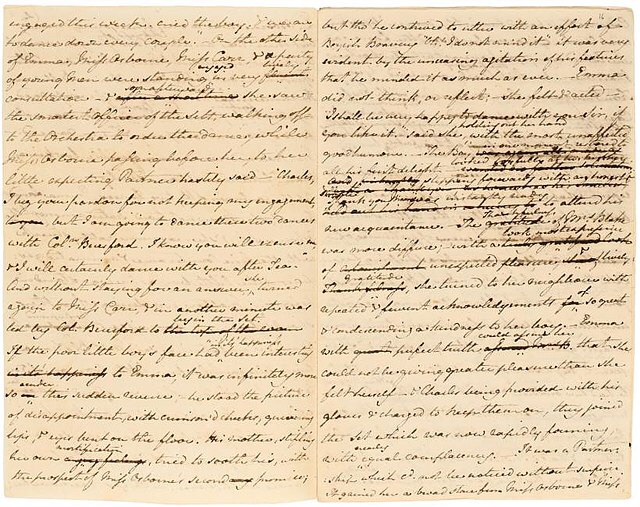 engaged this week, cried the boy, "& we are
to dance down every couple." - On the other side
of Emma, Miss Osborne, Miss Carr, & a party
of young Men were standing engaged in very lively
consultation - & soon afterwards she saw
the smartest officer of the Sett walking off
to the Orchestra to order the dance, while
Miss Osborne passing before her, to her
little expecting Partner hastily said - "Charles,
I beg your pardon for not keeping my engagement,
but I am going to dance these two dances
with Coln Beresford. I know you will excuse me,
& I will certainly dance with you after Tea."
And without staying for an answer, she turned
again to Miss Carr, & in another minute was
led by Col. Beresford to begin the set.
If the poor little boy's face had in its happiness been interesting
to Emma, it was infinitely more
so under this sudden reverse; - he stood the picture
of disappointment, with crimson'd cheeks, quivering
lips, & eyes bent on the floor. His mother, stifling
her own mortification, tried to sooth his, with
the prospect of Miss Osborne's second prom:ise;
but tho' he continued to utter with an effort of
Boyish Bravery "Oh! I do not mind it" it was very
evident by the unceasing agitation of his features
that he minded it as much as ever. - Emma
did not think, or reflect; - she felt & acted -.
"I shall be very happy to dance with you Sir, if
you like it." said she, holding out her hand with the most unaffected
goodhumour. - The Boy in one moment restored to
all his first delight
to attend his
new acquaintance. - The Thankfulness of Mrs Blake
was more diffuse; - with a look most expressive
of unexpected pleasure, & lively
gratitude, she turned to her neighbour with
repeated & fervent acknowledgements of so great
& condescending a kindness to her boy. - Emma
with perfect truth could assure her that she
could not be giving greater pleasure than she
felt herself - & Charles being provided with his
gloves & charged to keep them on, they joined
the Set which was now rapidly forming,
with nearly equal complacency. - It was a Partner:
ship which cd not be noticed without surprise.
It gained her a broad stare from Miss Osborne & Miss